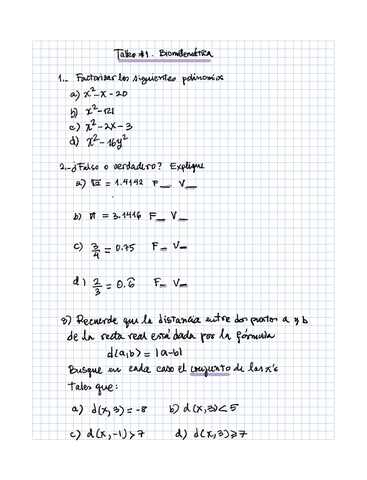 Taller #1. Biomatemática
1.- Factorizar los siguientes polinomios
a) x²-x-20
b) x²-121
c) x²-2x-3
d) x²-16y²
2.-¿Falso o verdadero? Explique
a) √2 = 1.4142 F__ V__
b) π = 3.1416 F__ V__
c) 3/4 = 0.75 F__ V__
d) 2/3 = 0.6̄ F__ V__
3) Recuerde que la distancia entre dos puntos a y b
de la recta real está dada por la fórmula
d(a,b) = |a-b|
Busque en cada caso el conjunto de las x's
tales que:
a) d(x,3) = -8 b) d(x,3) < 5
c) d(x,-1) > 7 d) d(x,3) ⩾ 7